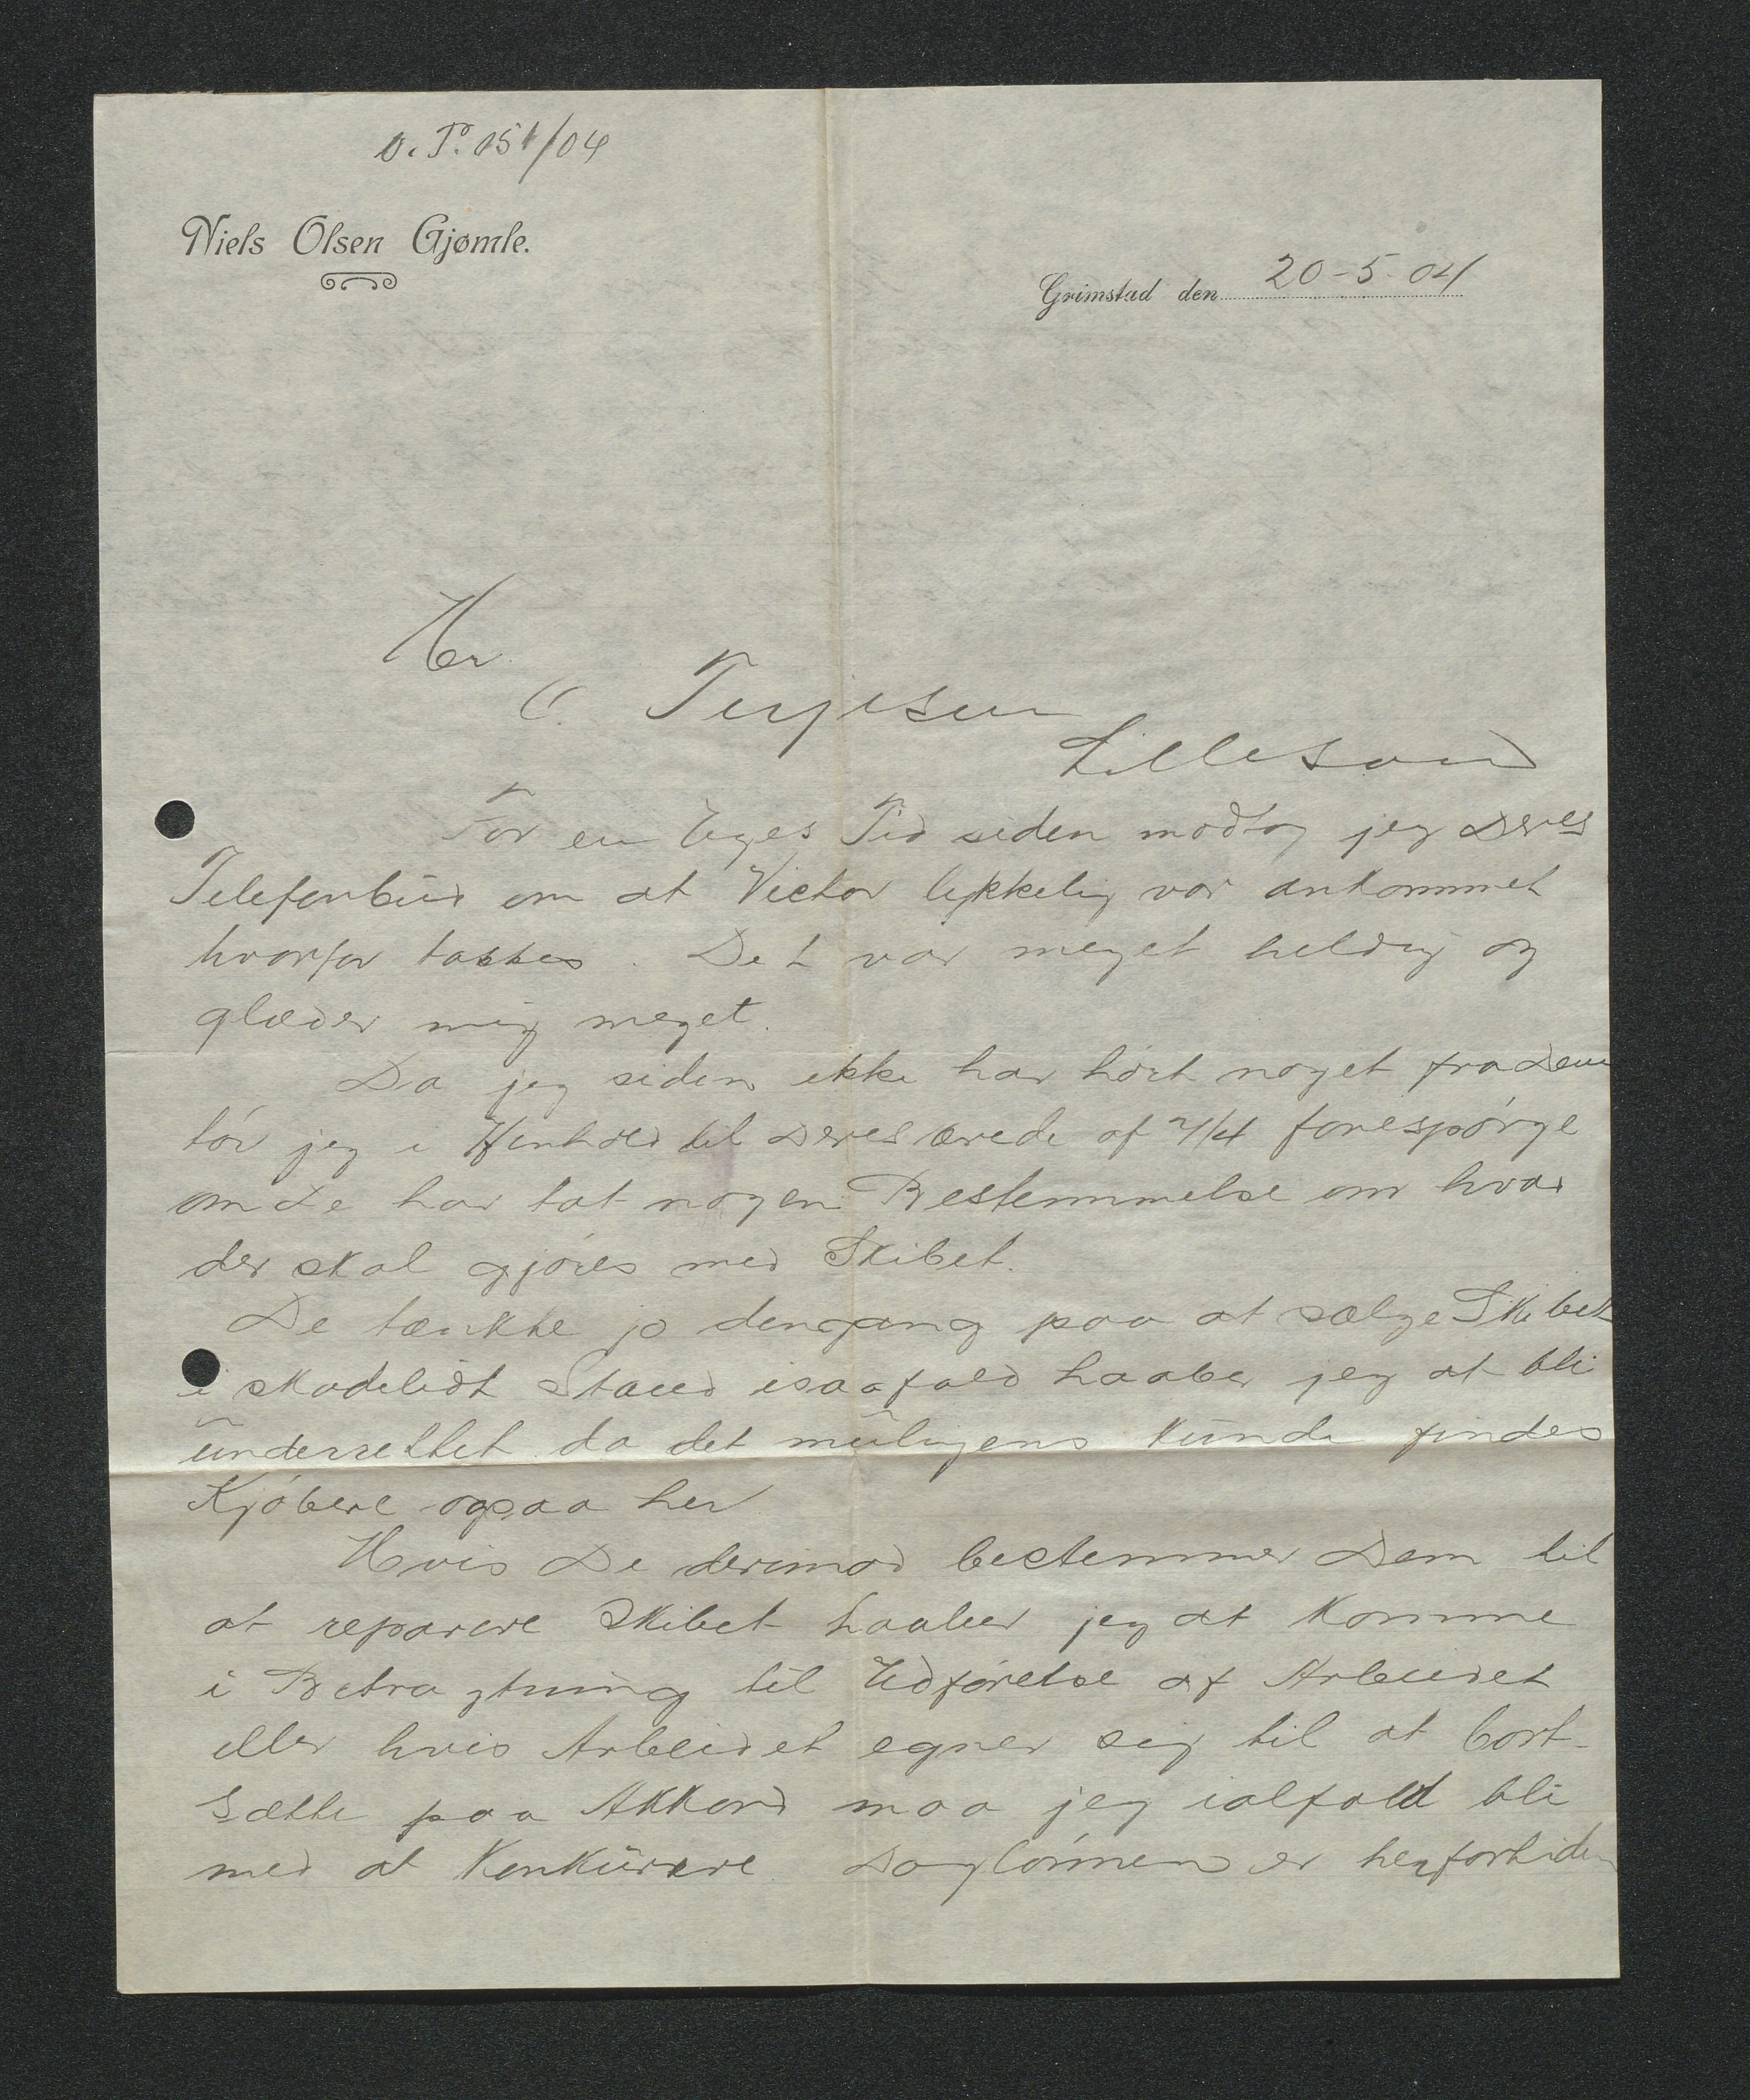 O. T. 15 1/04
Niels Olsen Gjømle.
Grimstad den 20-5-04
Hr.
O. Terjesen
Lillesand
For en Uges Tid siden modtog jeg Deres
Telefonbud om at Victor lykkelig var ankommet
hvorfor takkes. Det var meget heldig og
glæder mig meget.
Da jeg siden ikke har hørt noget fra Dem
tør jeg i Henhold til Deres ærede af 7/4 forespørge
om De har tat nogen Bestemmelse om hvad
der skal gjøres med Skibet.
De tænkte jo dengang paa at sælge Skibet
i skadelidt Stand isaafald haaber jeg at bli
underrettet da det muligens kunde findes
Kjøbere ogsaa her
Hvis De derimod bestemmer Dem til
at reparere Skibet haaber jeg at komme
i Betragtning til Udførelse af Arbeidet
eller hvis Arbeidet egner sig til at bort-
sætte paa Akkord maa jeg ialfald bli
med at konkurere. Daglønnen er her fortiden